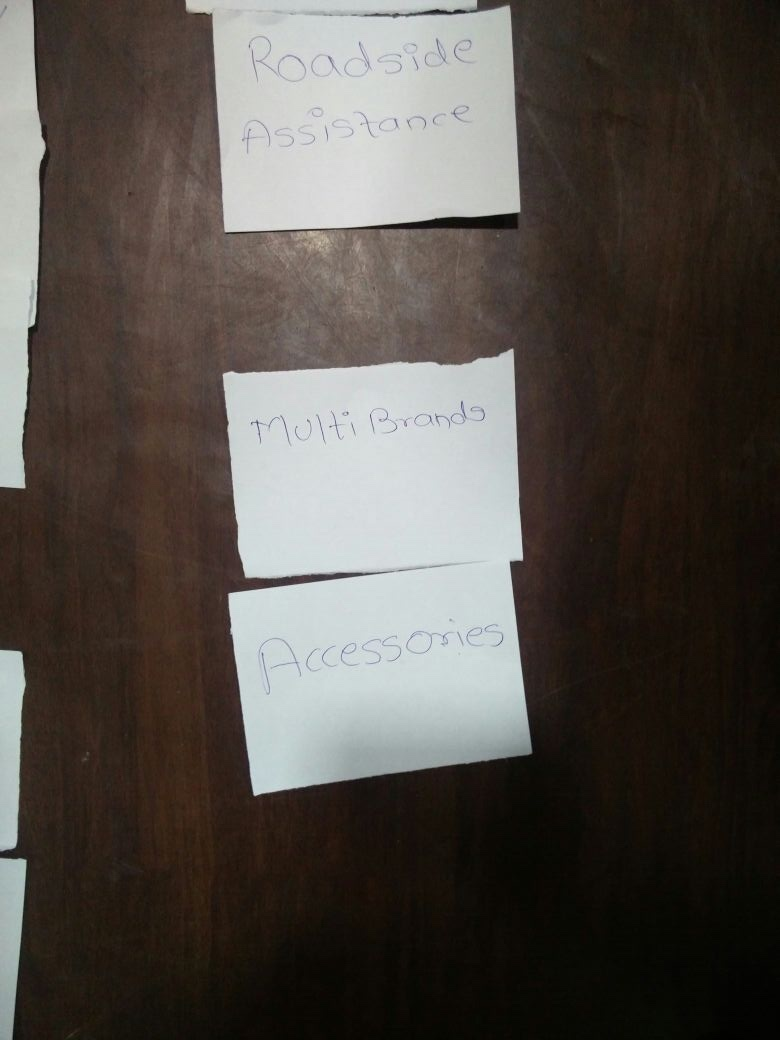 Roadside
Assistance
Multi Brands
Accessories